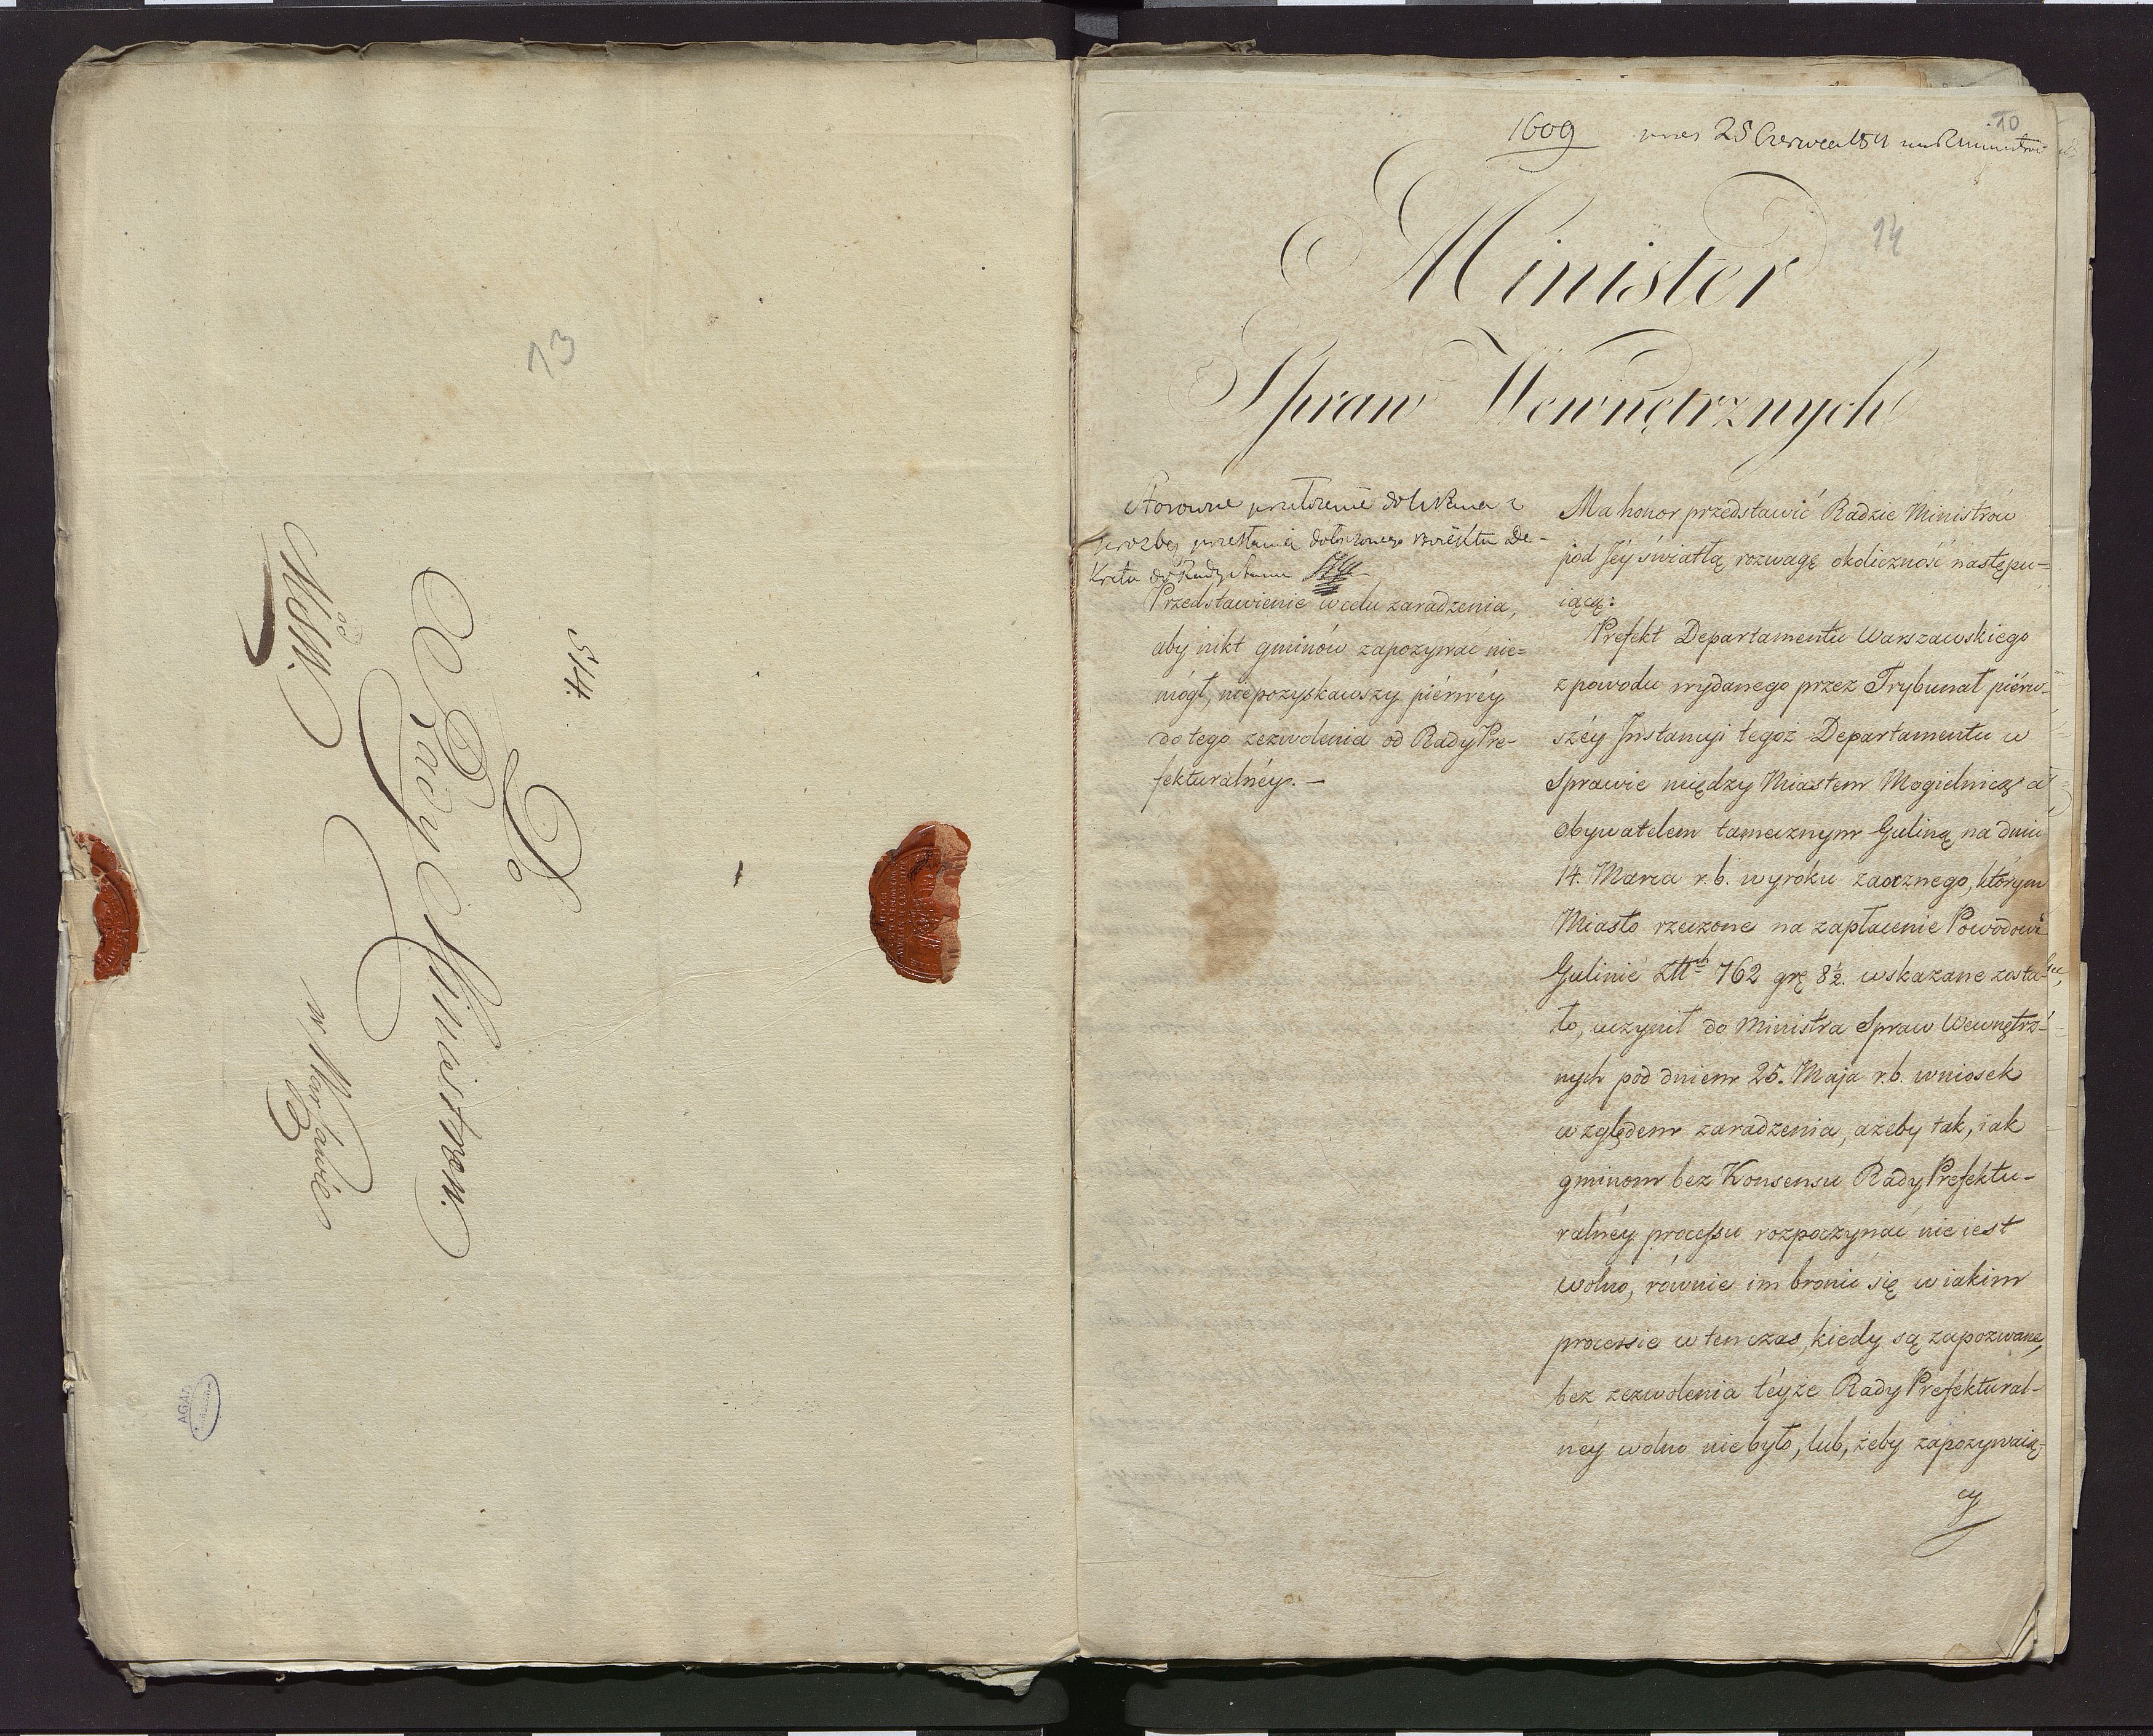 13
514.
Do
Rady Ministrow.
od
MSW.
w Warszawie
AGAD
1609
wnies 25 Czerwca 1811 na R Ministrow
10
14
Minister
Spraw Wewnętrznych
Stosowne przełożenie do
prozbą przesłania dołączonego Proiektu De-
kretu do Rady Stanu
Przedstawienie w celu zaradzenia,
aby nikt gminów zapozywać nie=
mógł, niepozyskawszy piérwéy
do tego zezwolenia od Rady Pre-
fekturalnéy. –
Ma honor przedstawić Radzie Ministrów
pod Jéy światłą rozwagę okoliczność następu=
iącą:
Prefekt Departamentu Warszawskiego
z powodu wydanego przez Trybunał piérw-
széy Instancyi tegoż Departamentu w
Sprawie między Miastem Mogielnicą a
Obywatelem tamecznym Guliną na dniu
14. Marca r. b. wyroku zaocznego, którym
Miasto rzeczone na zapłacenie Powodowi
Gulinie Złł.ch 762 grę 8½. wskazane zosta-
ło, uczynił do Ministra Spraw Wewnętrz-
nych pod dniem 25. Maja r. b. wniosek
względem zaradzenia, ażeby tak, iak
gminom bez Konsensu Rady Prefektu-
ralnéy processu rozpoczynać nie iest
wolno, równie im bronić się w iakim
processie w ten czas, kiedy są zapozwane,
bez zezwolenia téyże Rady Prefektural-
néy wolno nie było, lub, żeby zapozywaią-
cy